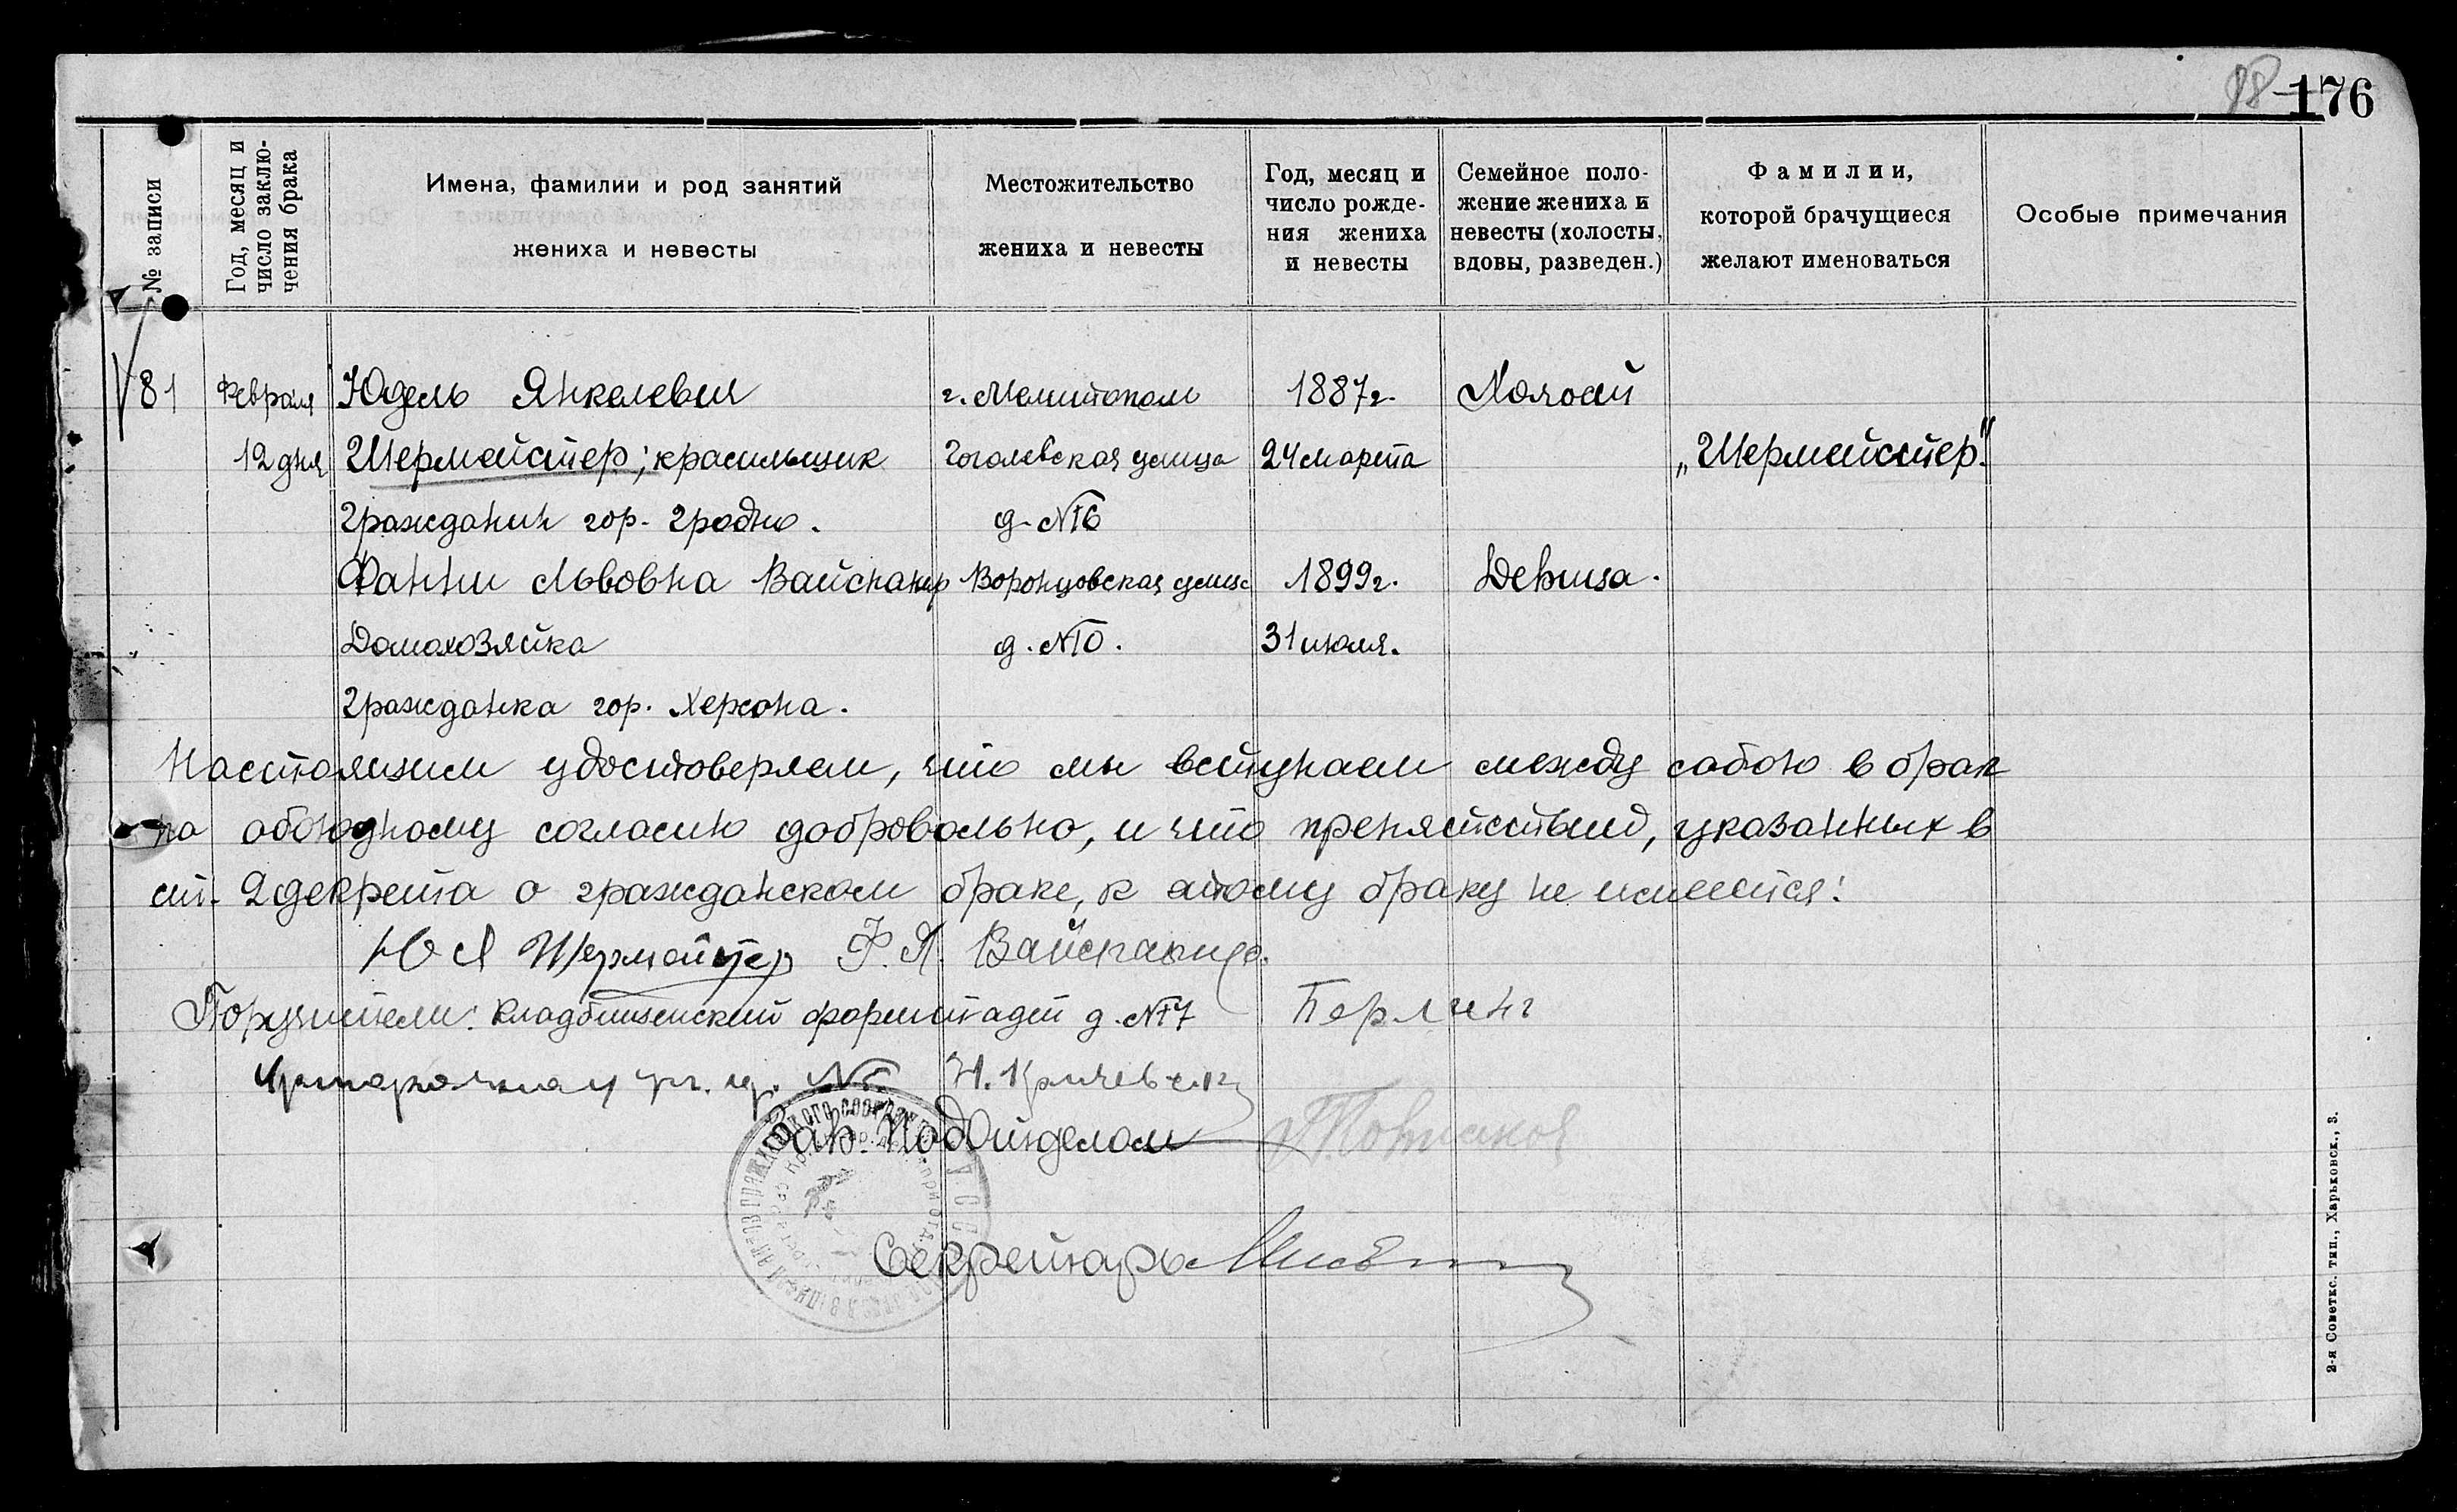 98 176
№ записи
Год, месяц и
число заклю-
чения брака
Имена, фамилии и род занятий
жениха и невесты
Местожительство
жениха и невесты
Год, месяц и
число рожде-
ния жениха
и невесты
Семейное поло-
жение жениха и
невесты (холосты,
вдовы, разведен.)
Фамилии,
которой брачущиеся
желают именоваться
Особые примечания
81 Февраля Юдель Янкелевич г. Мелитополь 1887г. Холост
12 дня Шермейстер; красильщик Гоголевская улица 24 марта „Шермейстер"
Гражданин гор. Гродно. д. №16
Фанни Львовна Вайснанр Воронцовская улица 1899г. Девица.
Домохозяйка д. №10. 31 июля.
Гражданка гор. Херсона.
Настоящим удостоверяем, что мы вступаем между собою в брак
по обоюдному согласию добровольно, и что препятствий, указанных в
ст. 2 декрета о гражданском браке, к этому браку не имеется:
Ю Я Шермейстер Ф. Л.
Поручители: Кладбищенский форштадт д. №17 Берлинг
Зав. Подотделом
Секретарь
2-я Советск. тип., Харьковск., 3.